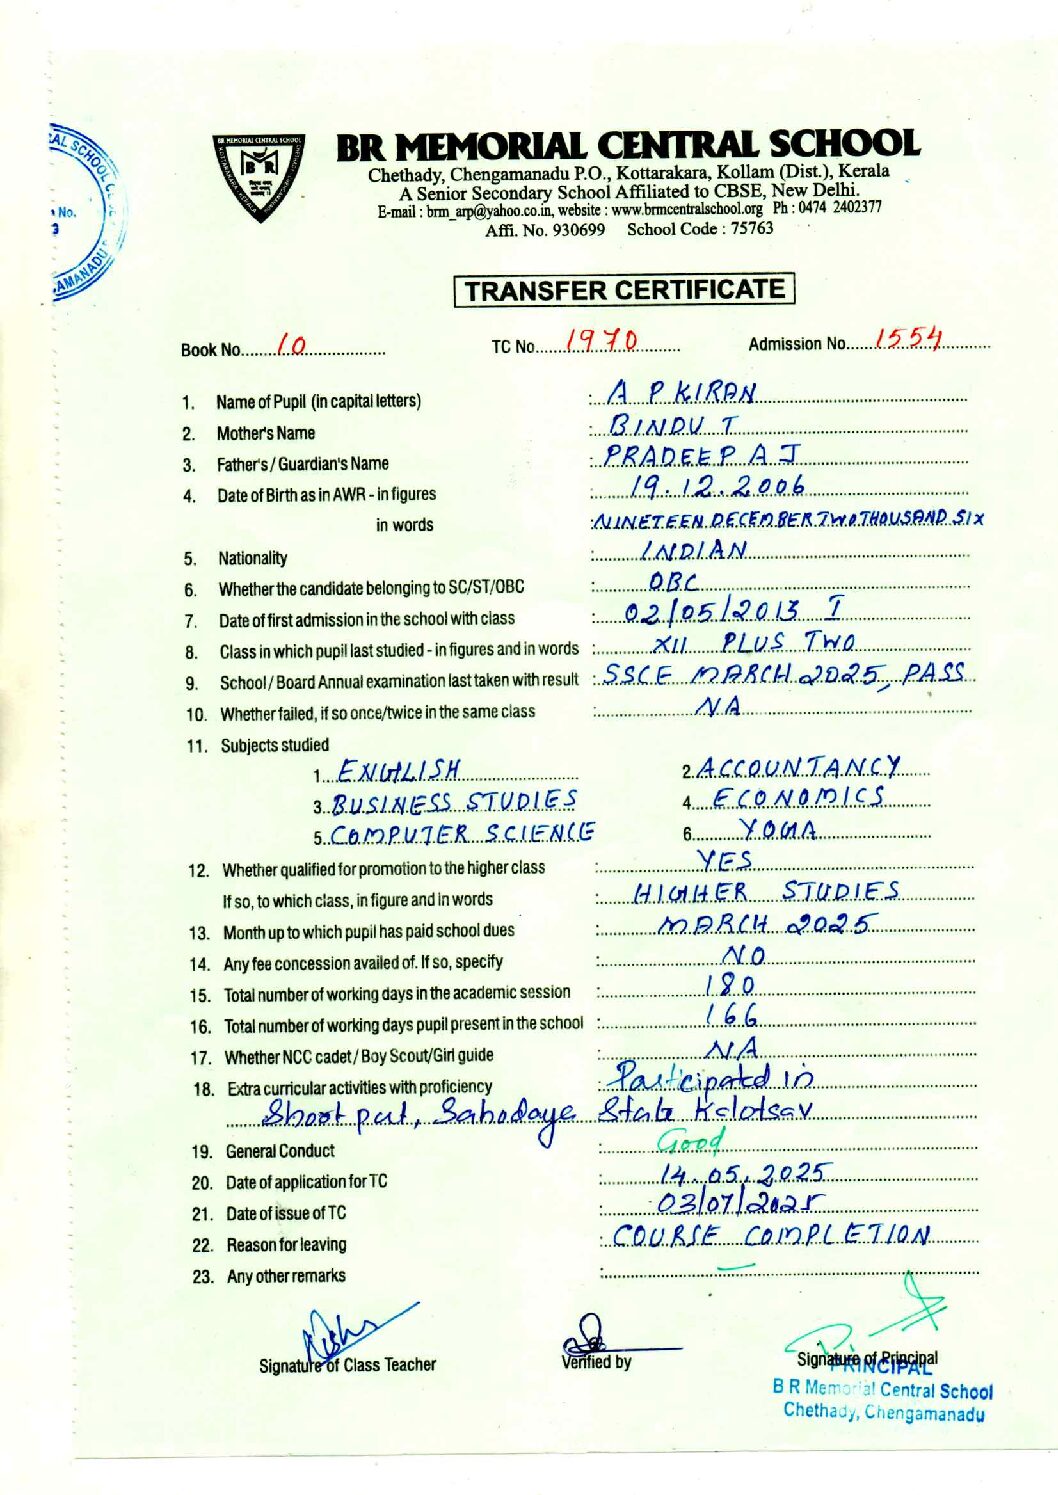 BR MEMORIAL CENTRAL SCHOOL
Chethady, Chengamanadu P.O., Kottarakara, Kollam (Dist.), Kerala
A Senior Secondary School Affiliated to CBSE, New Delhi.
E-mail : brm_arp@yahoo.co.in, website : www.brmcentralschool.org Ph : 0474 2402377
Affi. No. 930699 School Code : 75763
BR MEMORIAL CENTRAL SCHOOL
BR
TRANSFER CERTIFICATE
Book No. 10 TC No. 1970 Admission No. 1554
1. Name of Pupil (in capital letters) : A P KIRAN
2. Mother's Name : BINDU T
3. Father's / Guardian's Name : PRADEEP A J
4. Date of Birth as in AWR - in figures : 19.12.2006
in words : NINETEEN DECEMBER TWO THOUSAND SIX
5. Nationality : INDIAN
6. Whether the candidate belonging to SC/ST/OBC : OBC
7. Date of first admission in the school with class : 02/05/2013 I
8. Class in which pupil last studied - in figures and in words : XII PLUS TWO
9. School / Board Annual examination last taken with result : SSCE MARCH 2025, PASS
10. Whether failed, if so once/twice in the same class : NA
11. Subjects studied
1. ENGLISH 2. ACCOUNTANCY
3. BUSINESS STUDIES 4. ECONOMICS
5. COMPUTER SCIENCE 6. YOGA
12. Whether qualified for promotion to the higher class : YES
If so, to which class, in figure and in words : HIGHER STUDIES
13. Month up to which pupil has paid school dues : MARCH 2025
14. Any fee concession availed of. If so, specify : NO
15. Total number of working days in the academic session : 180
16. Total number of working days pupil present in the school : 166
17. Whether NCC cadet / Boy Scout/Girl guide : NA
18. Extra curricular activities with proficiency : Participated in
Shoot put, Sahodaya State Kalotsav
19. General Conduct : Good
20. Date of application for TC : 14.05.2025
21. Date of issue of TC : 03/07/2025
22. Reason for leaving : COURSE COMPLETION
23. Any other remarks : —
Signature of Class Teacher Verified by Signature of Principal
PRINCIPAL
B R Memorial Central School
Chethady, Chengamanadu